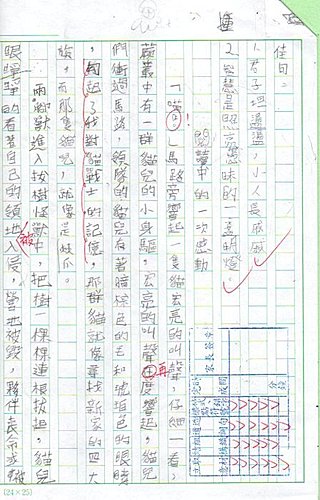 佳句:
1. 君子坦蕩蕩,小人長戚戚
2. 智慧是照亮愚昧的一盞明燈。
閱讀中的一次感動
「喵!」馬路旁響起一隻貓宏亮的叫聲,仔細一看,
草叢中有一群貓兒的小身軀,宏亮的叫聲再度響起,貓兒
們衝過馬路,領隊的貓兒有著暗棕色的毛和琥珀色的眼睛
,勾起了我對貓戰士的記憶,那群貓就像尋找新家的四大
族,而那隻貓兒,就像是棘爪。
兩腳獸進入拔樹怪獸中,把樹一棵棵連根拔起,貓兒
眼睜睜的看著自己的領地被入侵,營地被毀,夥伴喪命求
家長簽名
(24×25)